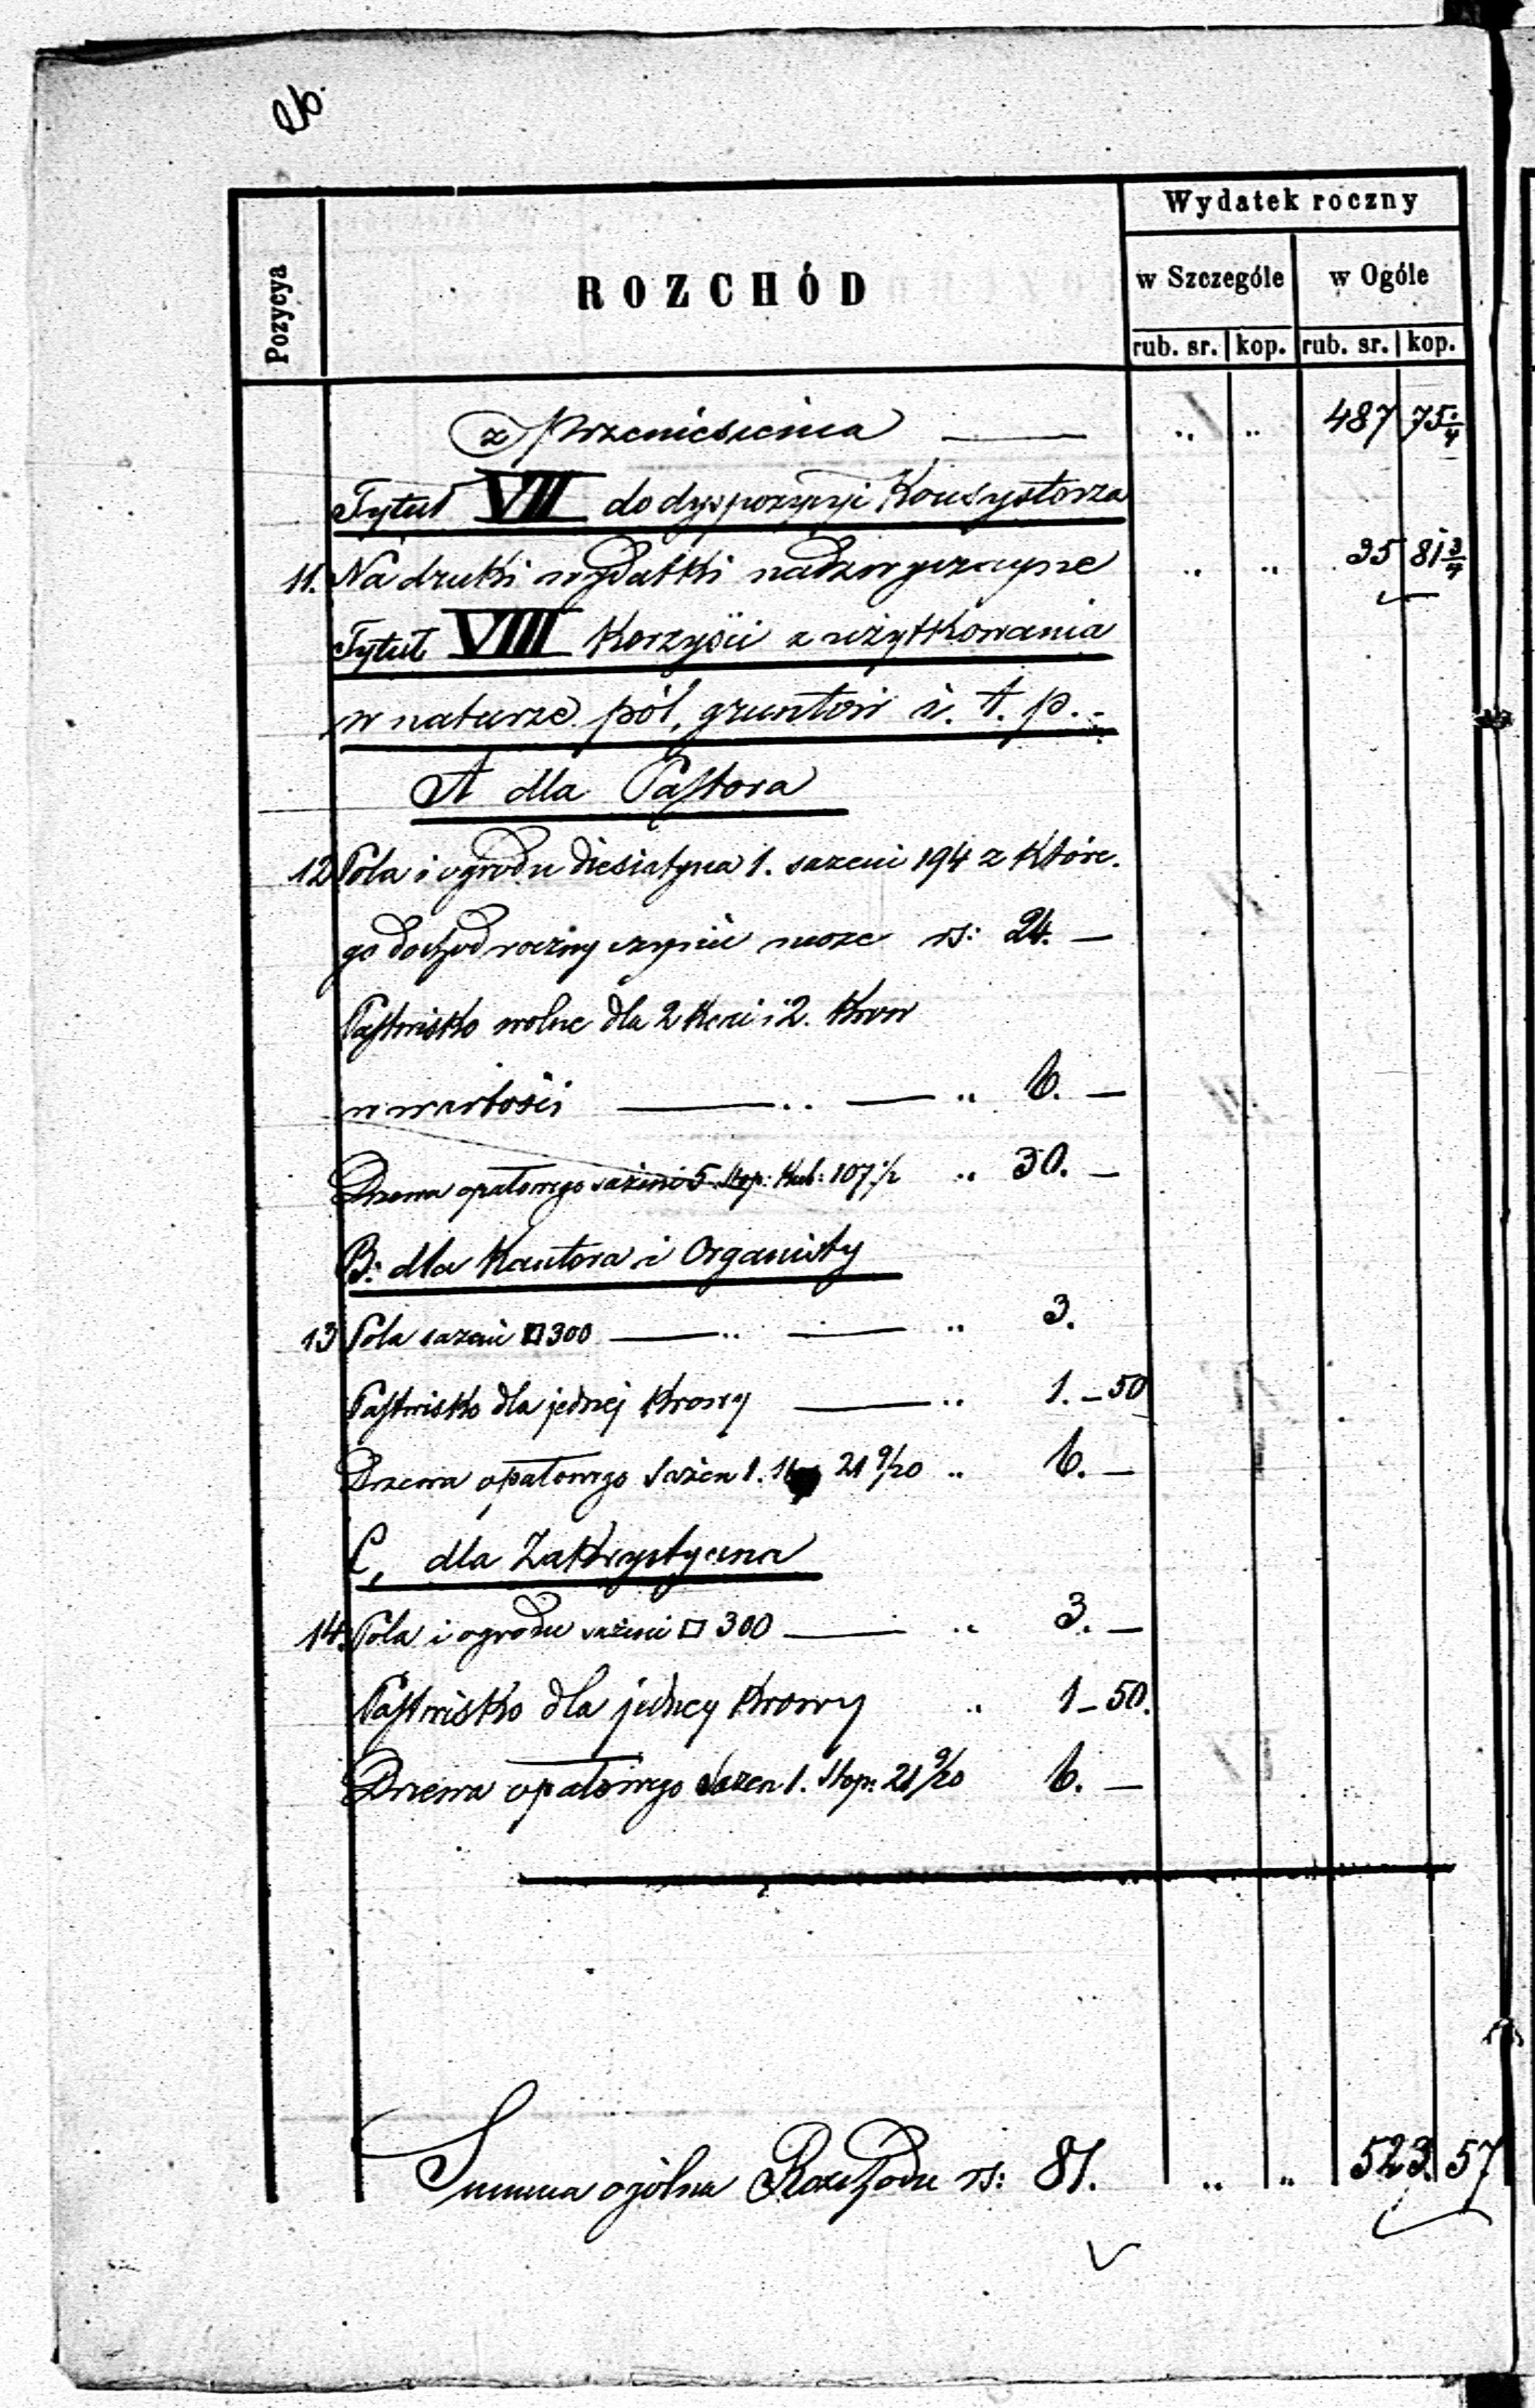 Wydatek roczny
Pozycya
ROZCHÓD
w Szczególe w Ogóle
rub. sr. kop. rub. sr. kop.
z Przeniesienia — " " 487 75 1/4
Tytuł VII do dyspozycyi Konsystorza
11. Na druki wydatki nadzwyczajne " " 35 81 3/4
Tytuł VIII Korzyści z użytkowania
w naturze pól, gruntów i. t. p. -
A dla Pastora
12 Pola i ogrodu diesiatyna 1. sazeni 194 z które-
go dochod roczny czynić może rs: 24. —
Pastwisko wolne dla 2 koni i 2. Krow
w wartości — " — " 6. —
Drzewa opałowego sażeni 5 Stop: Kub: 107 1/2 " 30. —
B: dla Kantora i Organisty
13 Pola sazeni □ 300 — " — " 3.
Pastwisko dla jednej Krowy — " 1. — 50
Drzewa opałowego Sażen 1. 21 9/20 " 6. —
C, dla Zakrystyana
14. Pola i ogrodu sażeni □ 300 — " 3. —
Pastwisko dla jednej Krowy " 1 — 50.
Drzewa opałowego Sazen 1. Stop: 21 9/20 6. —
Summa ogólna Rozchodu rs: 81. " " 523. 57